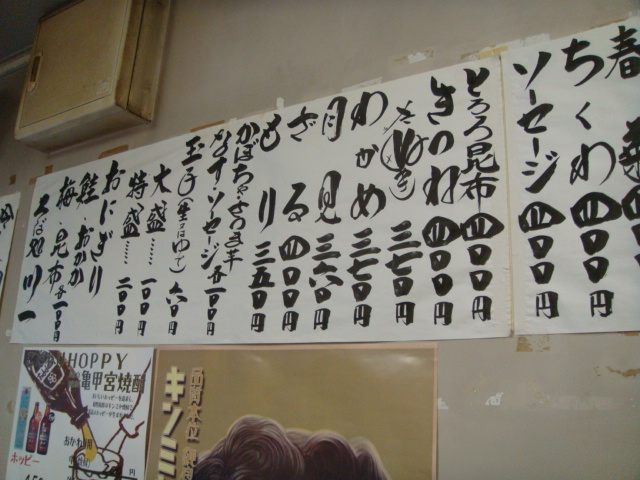 春菊
ちくわ 四〇〇円
ソーセージ 四〇〇円
とろろ昆布 四〇〇円
きつね 四〇〇円
たぬき 三七〇円
わかめ 三七〇円
月見 三六〇円
ざる 四〇〇円
もり 三五〇円
かぼちゃ・さつま芋
なす・ソーセージ 各一〇〇円
玉子(生又はゆで) 六〇円
大盛…… 一〇〇円
特盛…… 二〇〇円
おにぎり
鮭・おかか
梅・昆布 各一〇〇円
そば処 川一
HOPPY
亀甲宮焼酎
おかわり用
ホッピー
キンミ